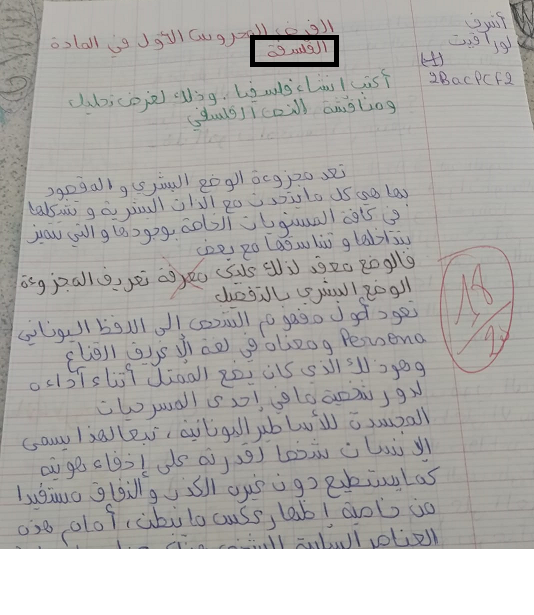 أشرف
لورافيت
2BacPCF2
الفرض المحروس الأول في المادة
الفلسفة
أكتب انشاء فلسفيا، وذلك لغرض تحليل
ومناقشة النص الفلسفي
تعد مجزوءة الوضع البشري و المقصود
بها هي كل ما يتحدث مع الذات البشرية و تشكلها
في كافة المستويات الخاصة بوجودها و التي تتميز
بتداخلها و تناسقها مع بعض
فالوضع معقد لذلك عليك معرفة تعريف المجزوءة
الوضع البشري بالتفصيل
تعود أصول مفهوم الشخص إلى اللفظ اليوناني
Persona ومعناه في لغة الإغريق القناع
وهو ذلك الذي كان يضع الممثل أثناء أداءه
لدور شخصية ما في إحدى المسرحيات
المجسدة للأساطير اليونانية، تبعا لهذا يسمى
الإنسان شخصا لقدرته على إخفاء هويته
كما يستطيع دون غيره الكذب والنفاق مستفيدا
من خاصية إظهار عكس ما يبطن، أمام هذه
العناصر السلبية
18/20